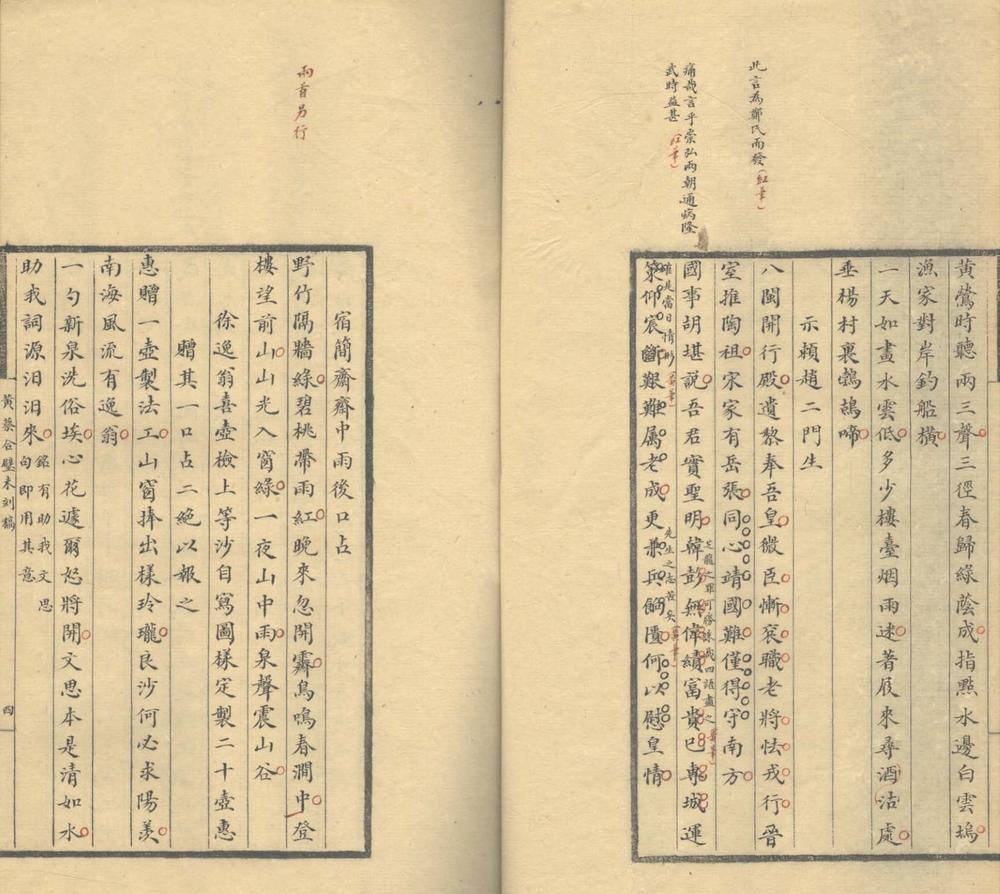 此言為鄭氏而發(紅筆)
痛哉言乎崇弘兩朝通病隆
武時益甚(紅筆)
黃鶯時聽兩三聲三徑春歸綠蔭成指點水邊白雲塢
漁家對岸釣船橫
一天如畫水雲低多少樓臺烟雨迷著屐來尋酒沽處
垂楊村裏鵓鴣啼
示賴趙二門生
八閩開行殿遺黎奉吾皇微臣慚袞職老將怯戎行晉
室推陶祖宋家有岳張同心靖國難僅得守南方
芝龍之罪可勝誅哉四語盡之
國事胡堪說吾君實聖明韓彭無偉績富貴已專城運
確是當日情形
先生之志苦矣
策仰宸斷艱難屬老成更兼兵餉匱何以慰皇情
兩首另行
宿簡齋齋中雨後口占
野竹隔牆綠碧桃帶雨紅晚來忽開霽鳥鳴春澗中登
樓望前山山光入窗綠一夜山中雨泉聲震山谷
徐逸翁喜壺檢上等沙自寫圖樣定製二十壺惠
贈其一口占二絕以報之
惠贈一壺製法工山窗捧出樣玲瓏良沙何必求陽羨
南海風流有逸翁
一勺新泉洗俗埃心花遽爾怒將開文思本是清如水
助我詞源汨汨來銘有助我文思
句即用其意
黃蔡合璧未刻稿
四